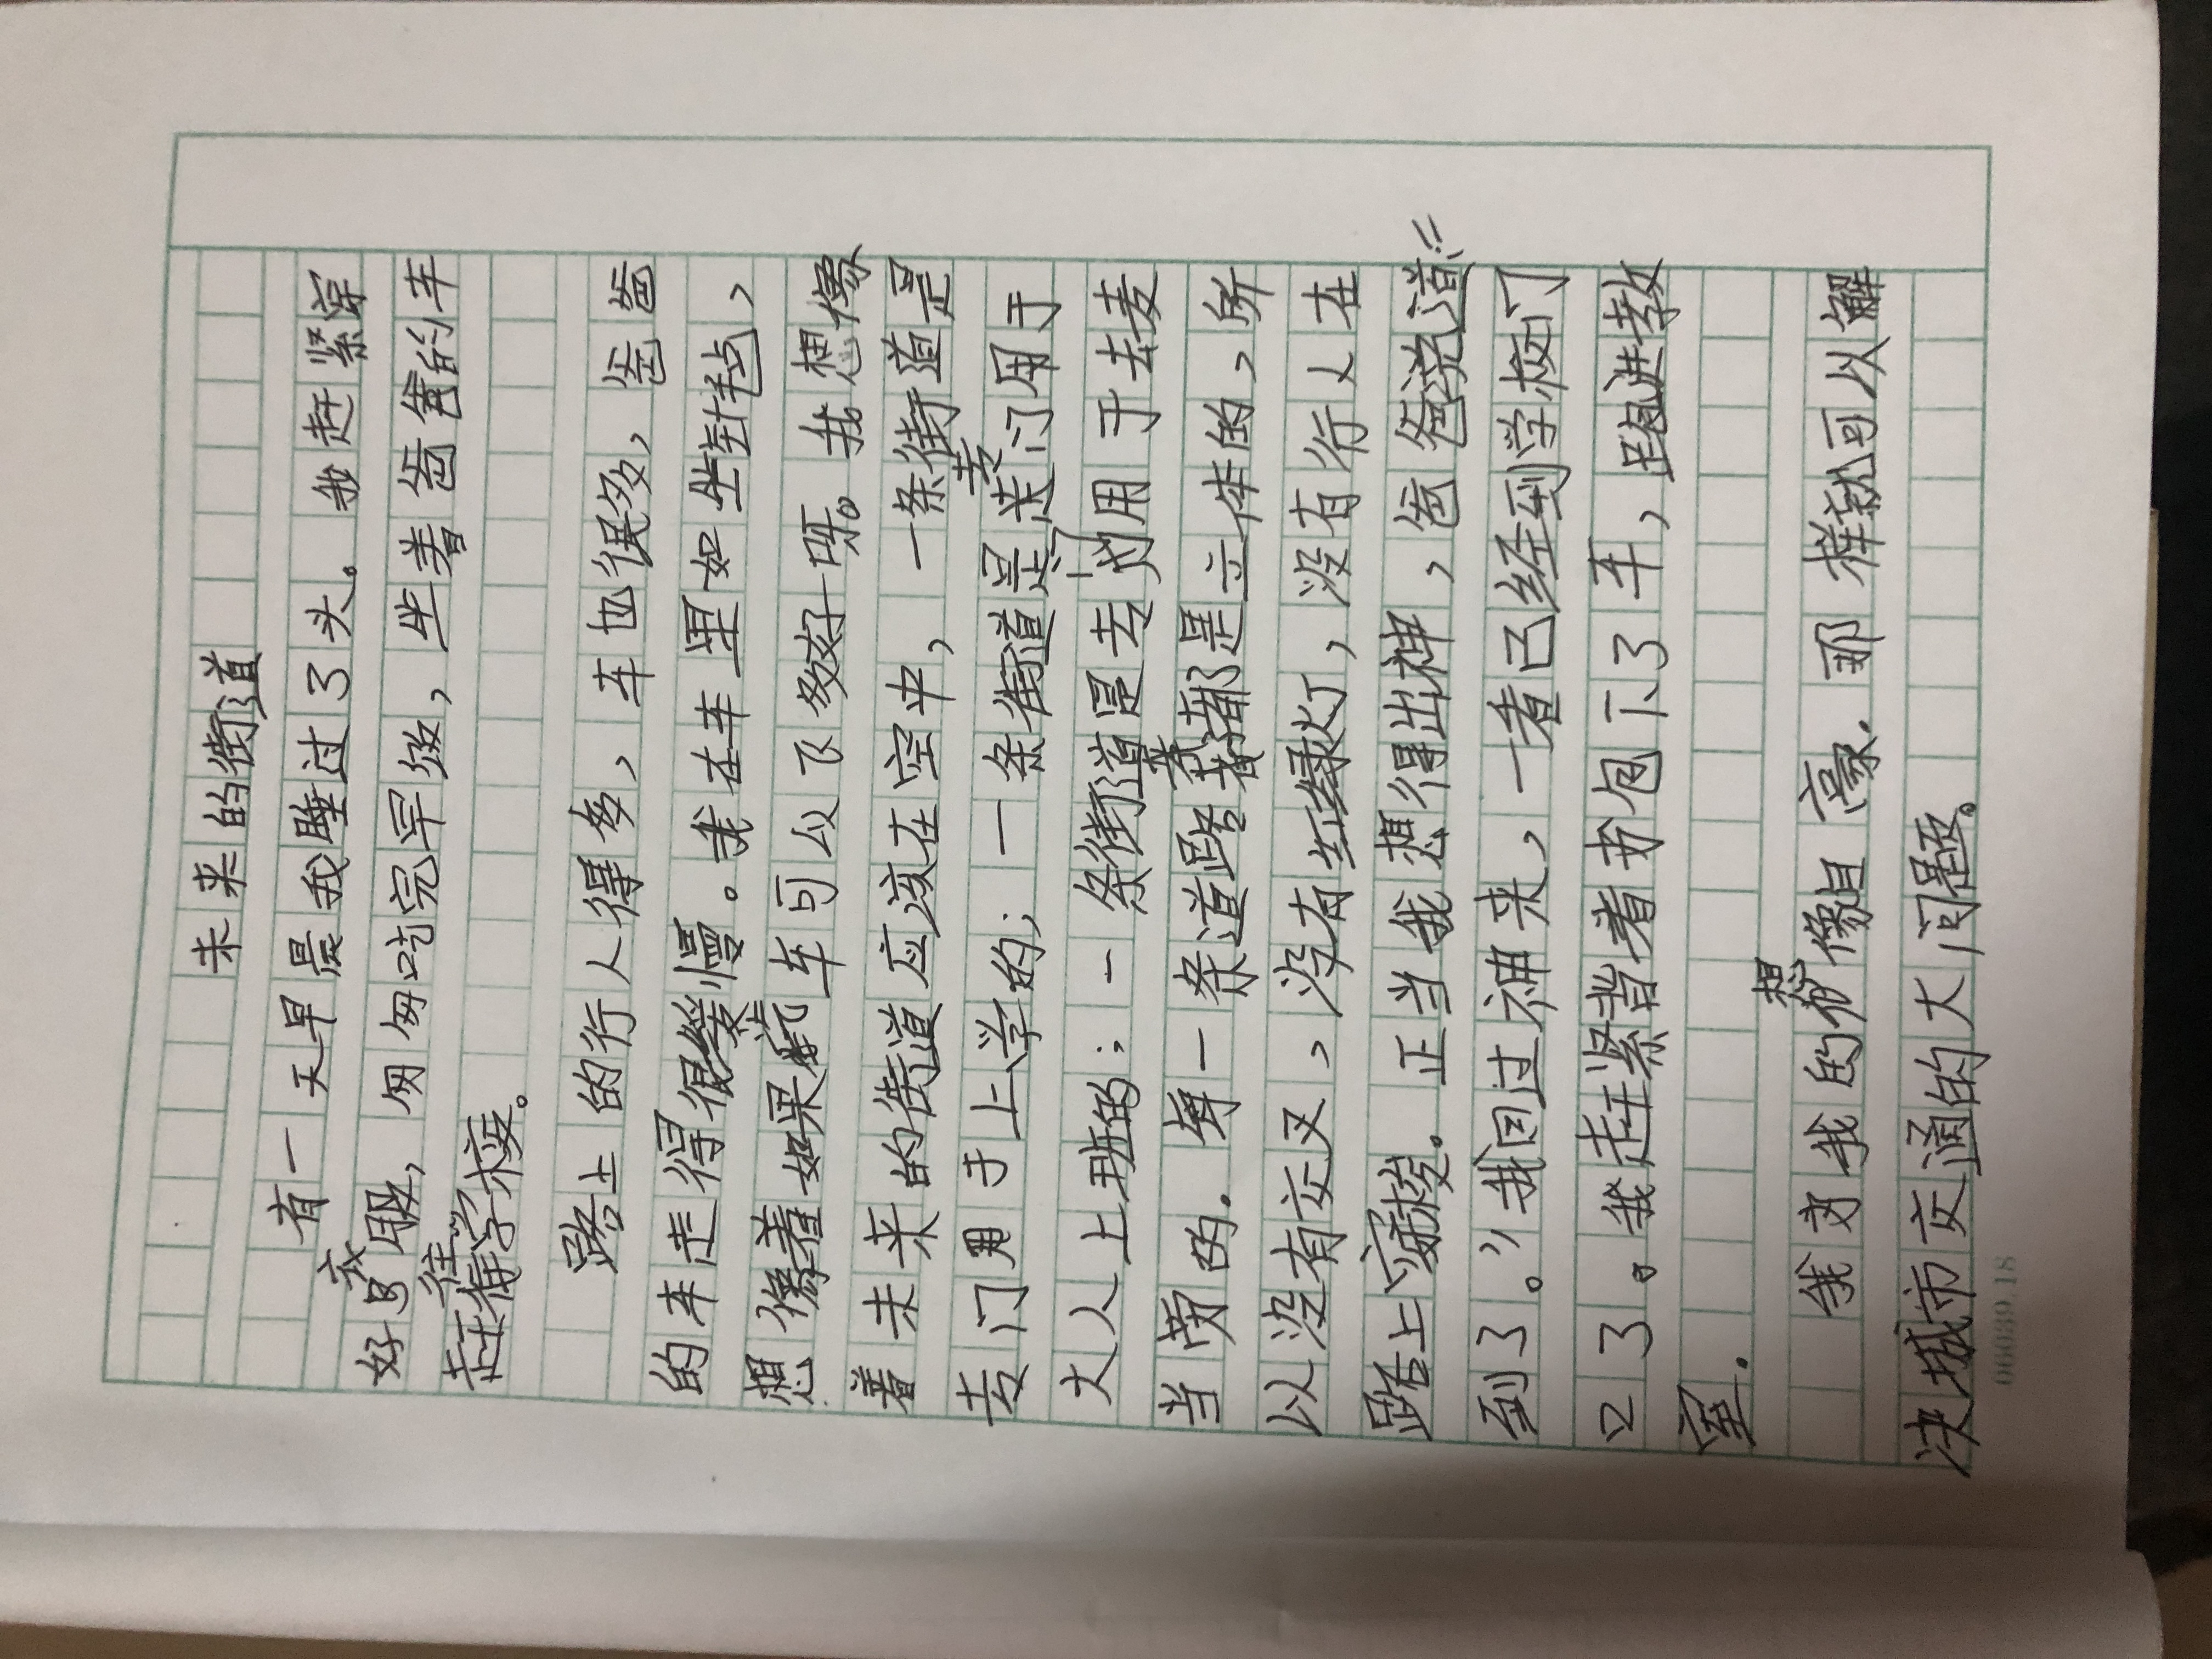 未来的街道
有一天早晨我睡过了头。我赶紧穿
好衣服，匆匆吃完早饭，坐着爸爸的车
赶往学校。
路上的行人得多，车也很多，爸爸
的车走得很缓慢。我在车里如坐针毡，
想像着如果汽车可以飞多好呀。我想像
着未来的街道应该在空中，一条街道是
专门用于上学的；一条街道是专门用于
大人上班的；一条街道是去用于去麦
当劳的。每一条道路都是立体的，所
以没有交叉，没有红绿灯，没有行人在
路上穿梭。正当我想得出神，爸爸说道：“
到了。”我回过神来，一看已经到学校门
口了。我赶紧背着书包下了车，跑进教
室。
我为我的想像自豪．那样就可以解
决城市交通的大问题。
00039.18